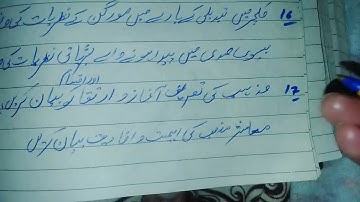 16 کلچر میں تبدیلی کے بارے میں مورگن کے نظریات کی
بیسویں صدی میں پیدا ہونے والے بشریاتی نظریات کی
اور اقسام
17 مذہب کی تعریف آغاز و ارتقا کو بیان کریں
معاشرہ مذہب کی اہمیت و افادیت بیان کریں